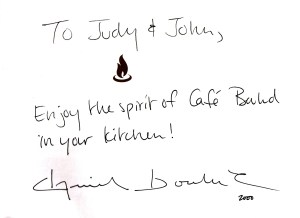 To Judy & John,
Enjoy the spirit of Café Boulud
in your kitchen!
2000